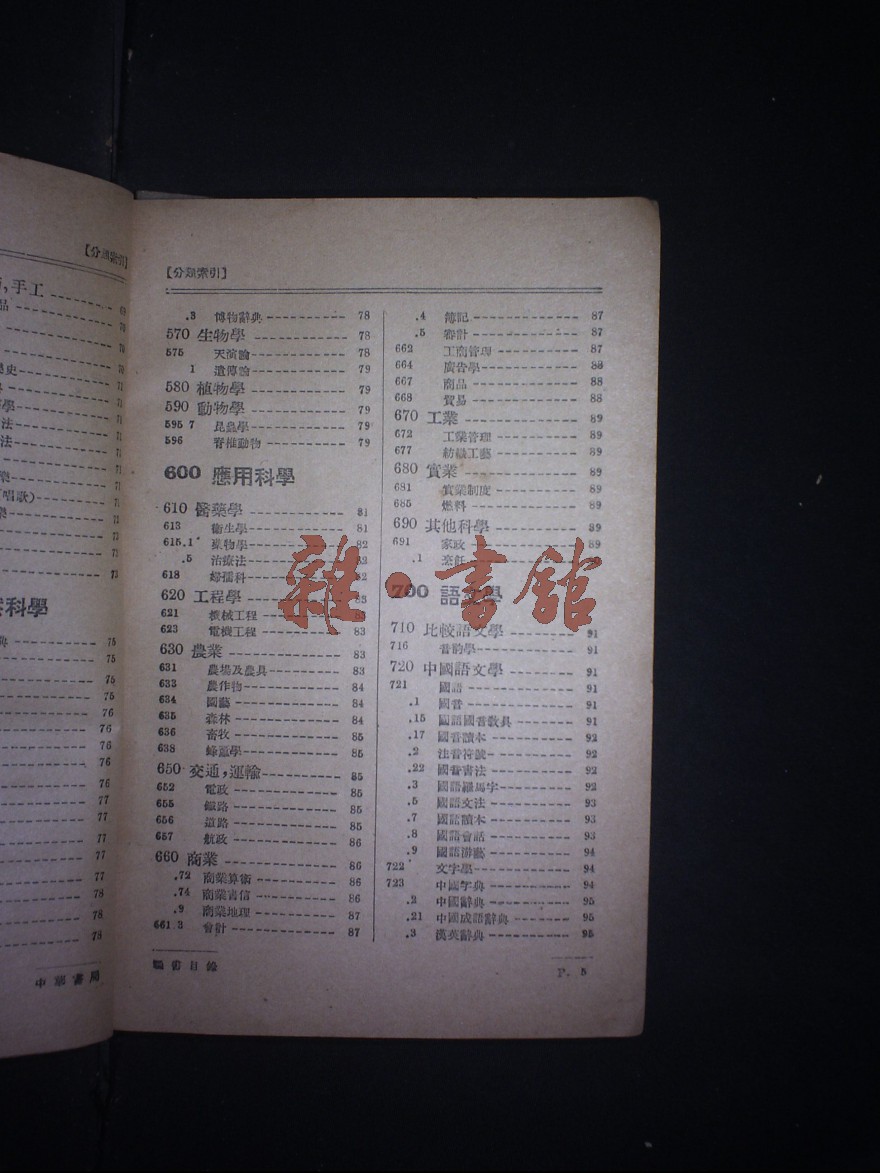 【分類索引】
手工
品
史
學
法
法
樂
唱歌)
樂
科學
典
69
70
70
70
71
71
71
71
71
71
71
72
73
73
73
75
75
75
75
76
76
76
76
77
77
77
77
78
78
78
中華書局
【分類索引】
.3 博物辭典 78
570 生物學 78
575 天演論 78
1 遺傳論 79
580 植物學 79
590 動物學 79
595 7 昆蟲學 79
596 脊椎動物 79
600 應用科學
610 醫藥學 81
613 衞生學 81
615.1 藥物學 82
.5 治療法 82
618 婦孺科 82
620 工程學 83
621 機械工程 83
623 電機工程 83
630 農業 83
631 農場及農具 83
633 農作物 84
634 園藝 84
635 森林 84
636 畜牧 85
638 蜂蠶學 85
650 交通,運輸 85
652 電政 85
655 鐵路 85
656 道路 85
657 航政 86
660 商業 86
.72 商業算術 86
.74 商業書信 86
.9 商業地理 87
661.3 會計 87
圖書目錄
.4 簿記 87
.5 審計 87
662 工商管理 87
664 廣告學 88
667 商品 88
668 貿易 88
670 工業 89
672 工業管理 89
677 紡織工藝 89
680 實業 89
681 實業制度 89
685 燃料 89
690 其他科學 89
691 家政 89
.1 烹飪
700 語文學
710 比較語文學 91
716 音韵學 91
720 中國語文學 91
721 國語 91
.1 國音 91
.15 國語國音敎具 91
.17 國音讀本 92
.2 注音符號 92
.22 國音書法 92
.3 國語羅馬字 92
.5 國語文法 93
.7 國語讀本 93
.8 國語會話 93
.9 國語游藝 94
722 文字學 94
723 中國字典 94
.2 中國辭典 95
.21 中國成語辭典 95
.3 漢英辭典 95
P. 5
雜·書館